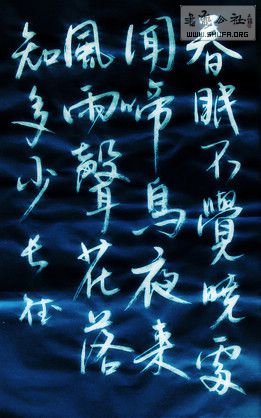 書法公社
WWW.SHUFA.ORG
春眠不覺曉處
聞啼鳥夜来
風雨聲花落
知多少